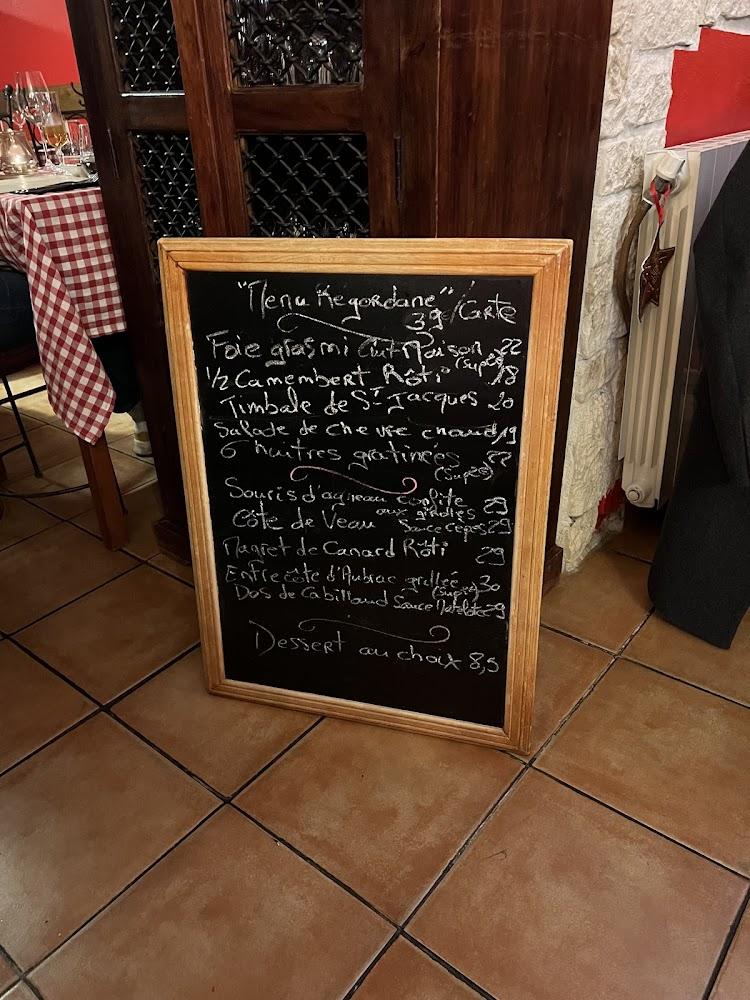 "Menu Regordane"
39/Carte
Foie gras mi cuit Maison 22
(Sup 5€)
1/2 Camembert Rôti 18
Timbale de St Jacques 20
Salade de chèvre chaud 19
6 huitres gratinées 22
(Sup 5€)
Souris d'agneau confite 29
aux girolles
Côte de Veau Sauce Cèpes 29
Magret de Canard Rôti 29
Entrecôte d'Aubrac grillée 30
(Sup 5€)
Dos de Cabillaud Sauce 29
Dessert au choix 8,5